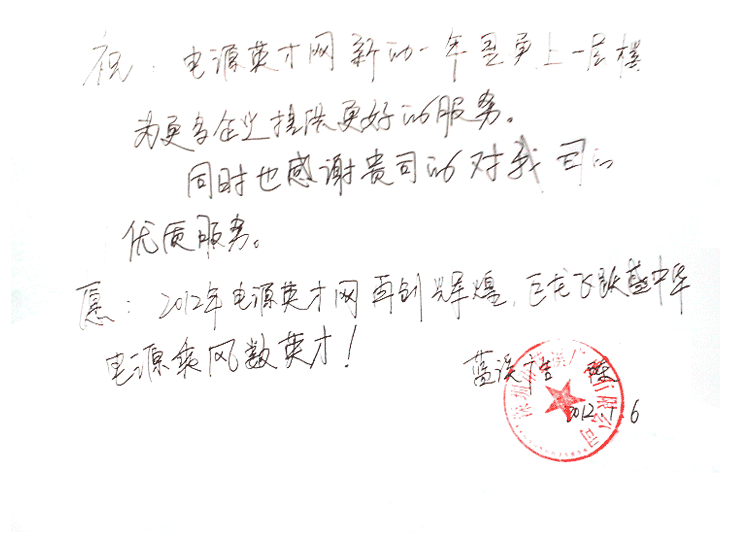 祝：电源英才网新的一年里更上一层楼
为更多企业提供更好的服务。
同时也感谢贵司的对我司的
优质服务。
愿：2012年电源英才网再创辉煌，巨龙飞跃盛中华
电源乘风数英才！
蓝溪广告 陈
2012.1.6
深圳 广告有限公司